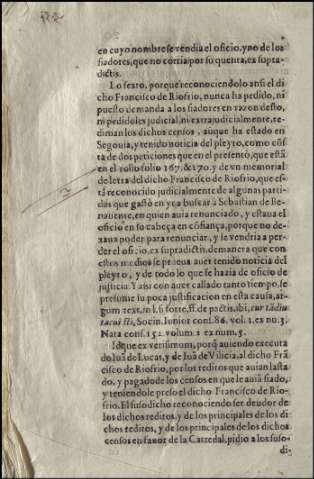 en cuyo nombre se vendia el oficio, y no de los
fiadores, que no corria por su quenta, ex supra-
dictis.
Lo sexto, porque reconociendolo ansi el di
cho Francisco de Riofrio, nunca ha pedido, ni
puesto demanda a los fiadores en razon desto,
ni pedidoles judicial, ni extrajudicialmente, re-
diman los dichos censos, aũque ha estado en
Segouia, y tenido noticia del pleyto, como cõs
ta de dos peticiones que en el presentò, que estã
en el rollo folio 167. & 170. y de vn memorial
de letra del dicho Francisco de Riofrio, que es-
tà reconocido judicialmente de algunas parti-
das que gastò en yr a buscar à Sebastian de Be-
nauente, en quien auia renunciado, y estaua el
oficio en su cabeça en confiãça, porque no de-
xaua poder para renunciar, y se vendria a per-
der el oficio, ex supradictis, demanera que con
estos medios se prueua auer tenido noticia del
pleyto, y de todo lo que se hazia de oficio de
justicia: Y assi con auer callado tanto tiempo, se
presume su poca justificacion en esta causa, ar-
gum. text. in l. si forte, ff. de pactis, ibi, cur tãdiu
tacui sti, Socin. Iunior cons. 86. vol. 1. ex nu. 3.
Nata cons. 152. volum. 1. ex num. 5.
Idque ex verisimili, porq̃ auiendo executa
do Iuã de Lucar, y de Iuã de Vilicia, al dicho Frã
cisco de Riofrio, por los reditos que auian lasta
do, y pagado de los censos en que le auiã fiado,
y teniendole preso el dicho Francisco de Rio-
frio. El suso dicho reconociendo ser deudor de
los dichos reditos, y de los principales de los di
chos reditos, y de los principales de los dichos
censos en fauor de la Catredal, pidio a los suso-
di-